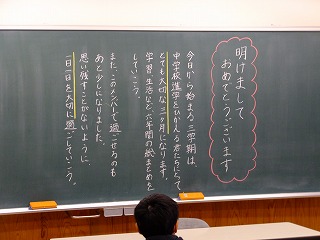 明けまして
おめでとうございます
今日から始まる三学期は、
中学校進学をひかえる君たちにとって
とても大切な三ヶ月になります。
学習、生活など六年間の総まとめを
していこう。
また、このメンバーで過ごせるのも
あと少しになりました。
思い残すことがないように、
一日一日を大切に過ごしていこう。